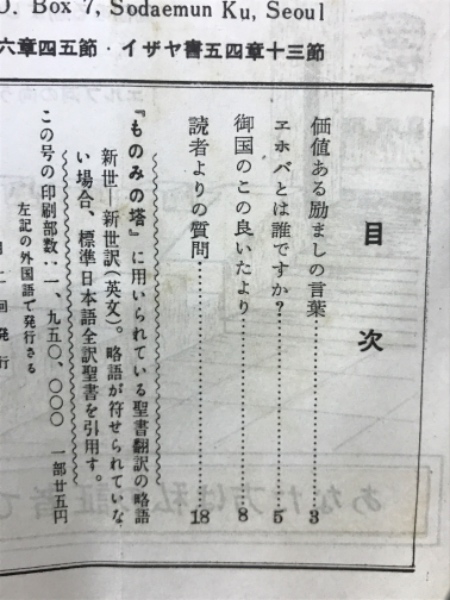 O. Box 7, Sodaemun Ku, Seoul
六章四五節・イザヤ書五四章十三節
目次
価値ある励ましの言葉 3
ヱホバとは誰ですか? 5
御国のこの良いたより 8
読者よりの質問 18
『ものみの塔』に用いられている聖書翻訳の略語
新世―新世訳(英文)。略語が符せられていな
い場合、標準日本語全訳聖書を引用す。
この号の印刷部数:一、九五〇、〇〇〇 一部廿五円
左記の外国語で発行さる
月二回発行